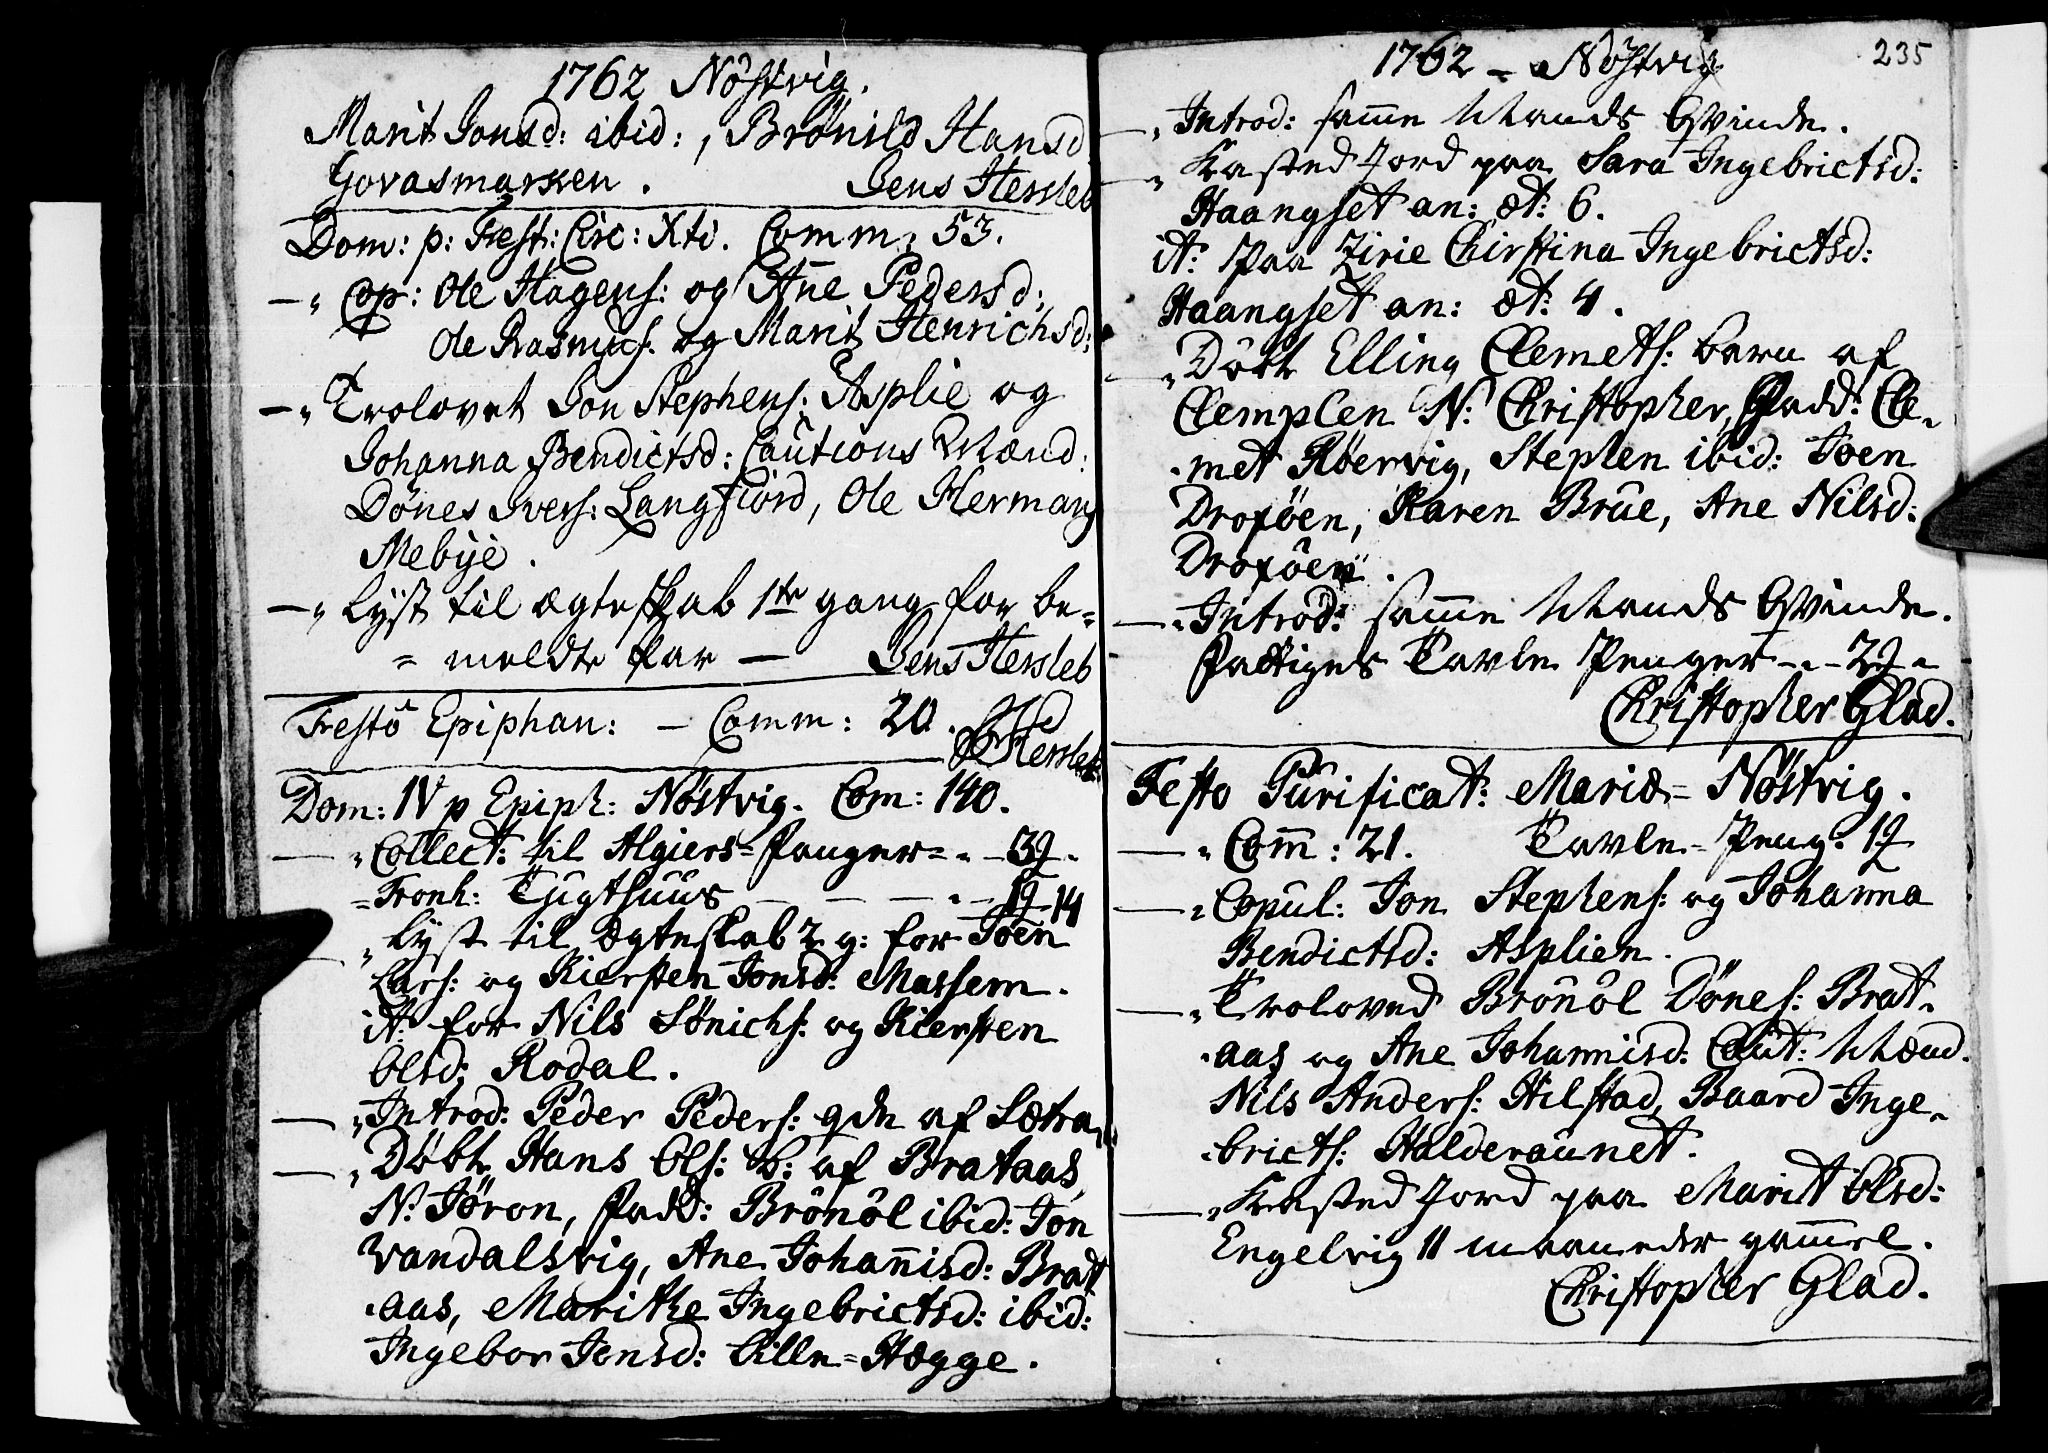 1762 Nöstvig.
Marit Jonsd: ibid:, Brönild Hansd
Govasmarken. Jens Hersleb
Dom: p: Fest: Circ: Xti. Comm: 53.
—" Cop: Ole Hagens: og Añe Pedersd:,
Ole Rasmus: og Marit Henrichsd:
—" Trolovet Jon Stephens: Asplie og
Johanna Bendictsd: Cautions Mænd:
Dönes Ivers: Langfiord, Ole Hermans
Mebÿe.
—" Lyst til ægteskab 1te gang for be=
= meldte par — Jens Hersleb
Festo Epiphan: — Comm: 20.
Hersleb
Dom: IV p Epiph: Nöstvig. Com: 140.
—" Collect: til Algiers=Fanger=" — 39.
= Tronh: Tugthuus — — — " — 19-14
—" Lyst til ægteskab 2 g: for Joen
Lars: og Kiersten Jonsd: Massem.
it: for Nils Sönichs: og Kiersten
Olsd: Rodal.
—" Introd: Peder Peders: qde af Sætra,
—" Döbt Hans Ols: b: af Brataas,
N: Jöron, Fadd: Brönöl ibid: Jon
Vandalsvig, Ane Johañisd: Brat
-aas, Marithe Ingebrictsd: ibid:
Ingebor Jonsd: Lille=Hægge.
1762 — Nöstvig
235
—" Introd: samme Mands Qvinde.
—" Kasted Jord paa Sara Ingebrictsd:
Haangset an: æt: 6.
it: paa Zirie Chirstina Ingebrictsd:
Haangset an: æt: 4.
—" Döbt Elling Clemets: barn af
Clemplen N: Christopher, Fadd: Cle-
-met Röervig, Stephen ibid: Joen
Droföen, Karen Brue, Ane Nilsd:
Droföen.
—" Introd: samme Mands Qvinde.
Fattiges Tavle Penger — " — 29 "
Christopher Glad.
Festo Purificat: Mariæ = Nöstvig.
—" Com̄: 21. Tavle=Peng: 19
—" Copul: Jon Stephens: og Johanna
Bendictsd: Asplien.
—" Troloved Brönöl Dönes: Brat-
-aas og Ane Johannisd: Caut: Mænd.
Nils Anders: Hilstad, Baard Inge-
-bricts: Halderaunet.
—" Kasted Jord paa Marit Olsd:
Engelvig 11 maaneder gammel.
Christopher Glad.